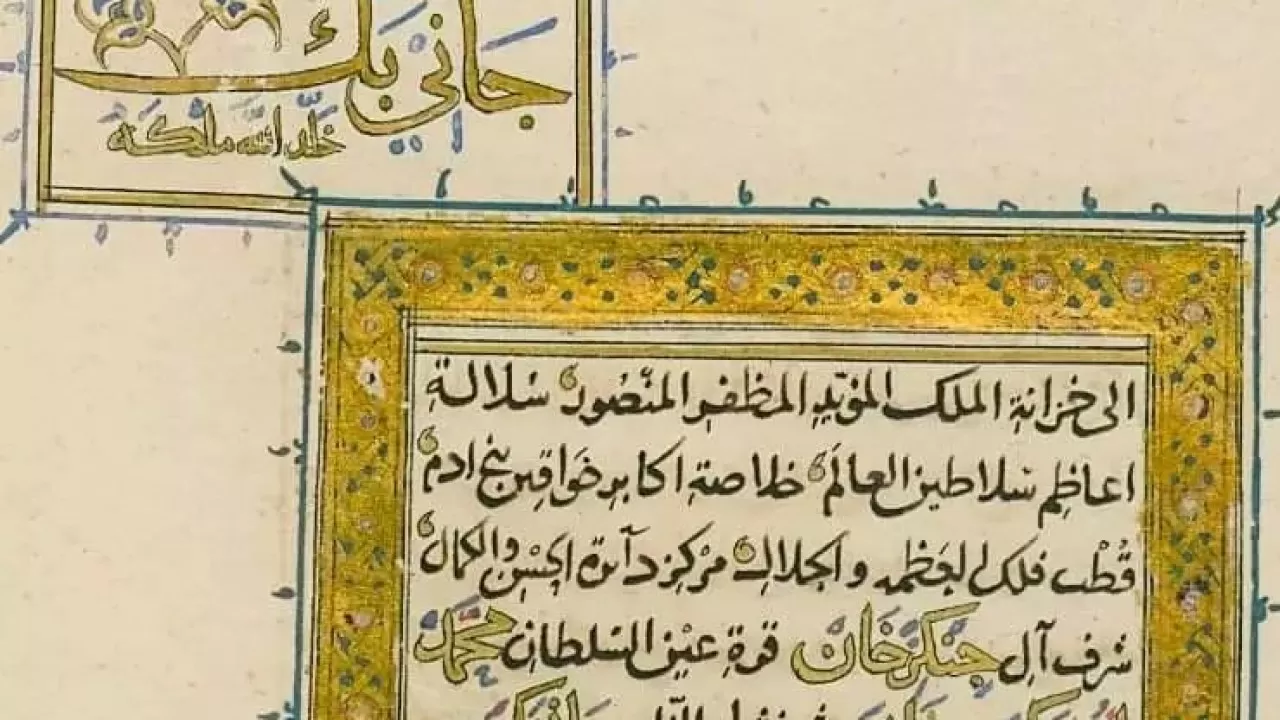 جاني بك
خلد الله ملكه
الى خزانة الملك المؤيد المظفر المنصور سلالة
اعاظم سلاطين العالم خلاصة اكابر خواقين بنى ادم
قطب فلك العظمه والجلال مركز دآئرة الحسن والكمال
شرف آل جنكزخان قرة عين السلطان محمد